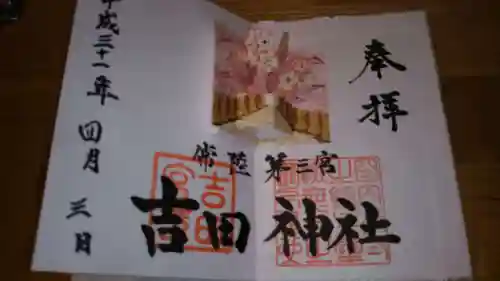 奉拝
常陸第三宮
吉田神社
平成三十一年四月三日